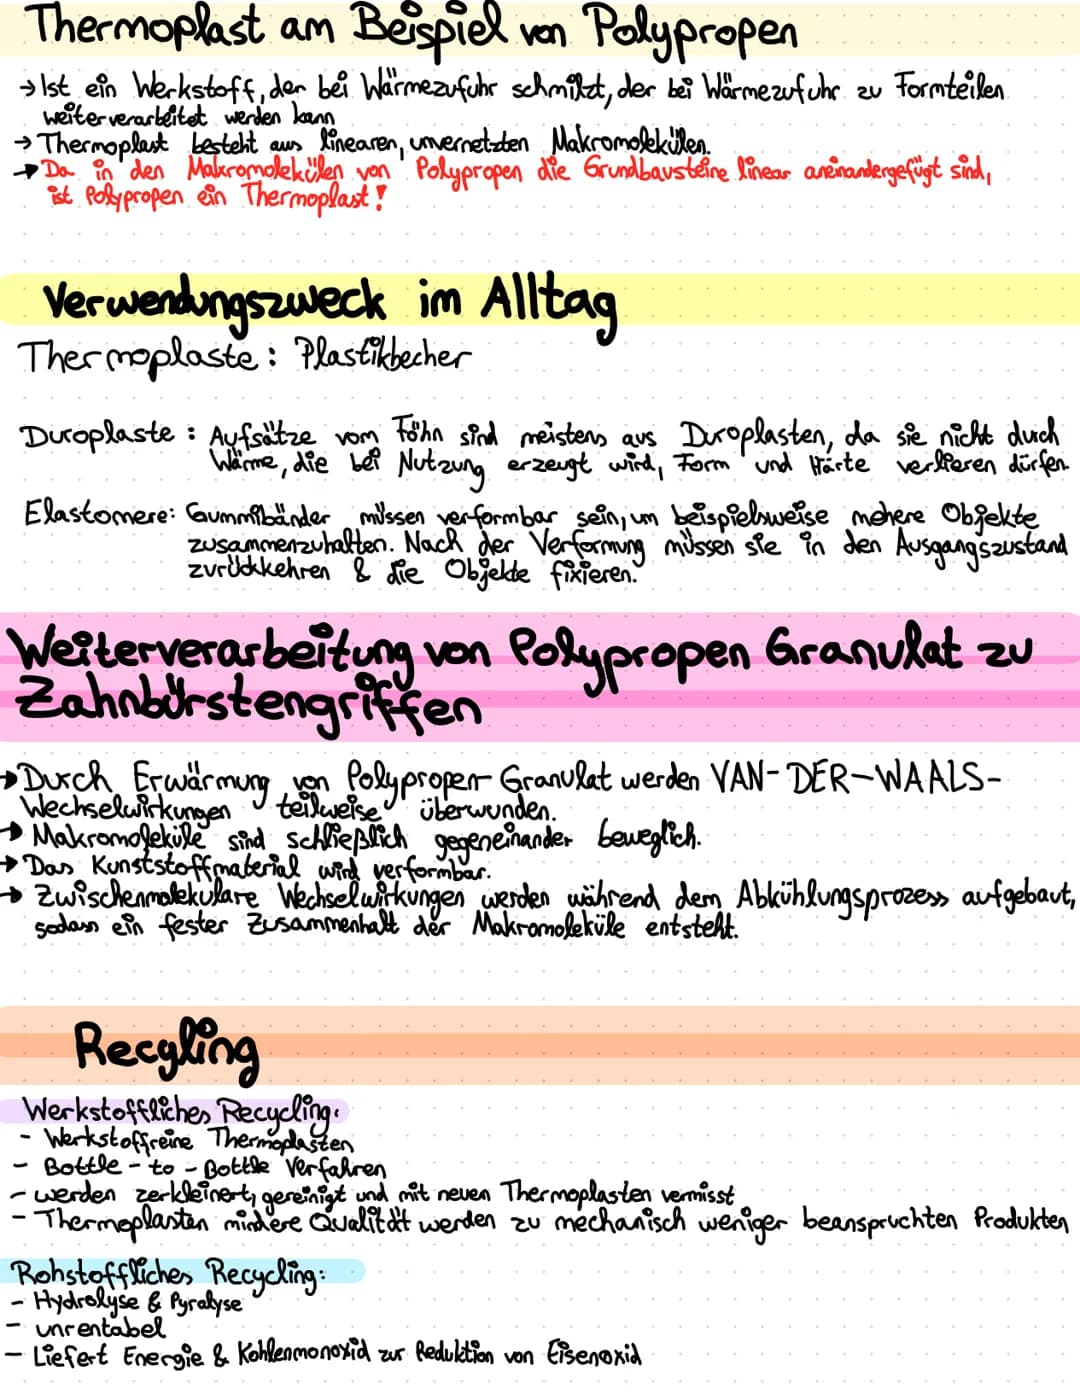 Thermoplast am Beispiel von Polypropen
→ Ist ein Werkstoff, der bei Wärmezufuhr schmilzt, der bei Wärmezufuhr zu Formteilen
weiterverarbeitet werden kann
→ Thermoplast besteht aus linearen, unvernetzten Makromolekülen.
→ Da in den Makromolekülen von Polypropen die Grundbausteine linear aneinandergefügt sind,
ist Polypropen ein Thermoplast!
Verwendungszweck im Alltag
Thermoplaste: Plastikbecher
Duroplaste: Aufsätze vom Föhn sind meistens aus Duroplasten, da sie nicht durch
Wärme, die bei Nutzung erzeugt wird, Form und Härte verlieren dürfen.
Elastomere: Gummibänder müssen verformbar sein, um beispielsweise mehere Objekte
zusammenzuhalten. Nach der Verformung müssen sie in den Ausgangszustand
zurückkehren & die Objekte fixieren.
Weiterverarbeitung von Polypropen Granulat zu
Zahnbürstengriffen
→ Durch Erwärmung von Polypropen-Granulat werden VAN-DER-WAALS-
Wechselwirkungen teilweise überwunden.
→ Makromoleküle sind schließlich gegeneinander beweglich.
→ Das Kunststoffmaterial wird verformbar.
→ Zwischenmolekulare Wechselwirkungen werden während dem Abkühlungsprozess aufgebaut,
sodass ein fester Zusammenhalt der Makromoleküle entsteht.
Recyling
Werkstoffliches Recycling:
- Werkstoffreine Thermoplasten
- Bottle-to-Bottle Verfahren
- werden zerkleinert, gereinigt und mit neuen Thermoplasten vermisst
- Thermoplasten mindere Qualität werden zu mechanisch weniger beanspruchten Produkten
Rohstoffliches Recycling:
- Hydrolyse & Pyralyse
- unrentabel
- Liefert Energie & Kohlenmonoxid zur Reduktion von Eisenoxid